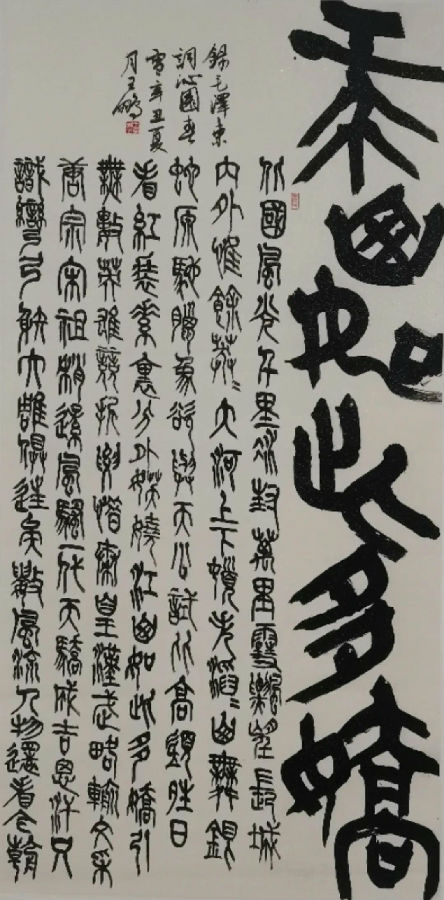 山如此多嬌
北國風光千里冰封萬里雪飄望長城
內外惟餘莽〻大河上下頓失滔〻山舞銀
蛇原馳臘象欲與天公試比高須晴日
看紅裝素裹分外妖嬈江山如此多嬌引
無數英雄競折腰惜秦皇漢武略輸文采
唐宗宋祖稍遜風騷一代天驕成吉思汗只
識彎弓射大雕俱往矣數風流人物還看今朝
錄毛澤東
詞沁園春
雪辛丑夏
月王鵬